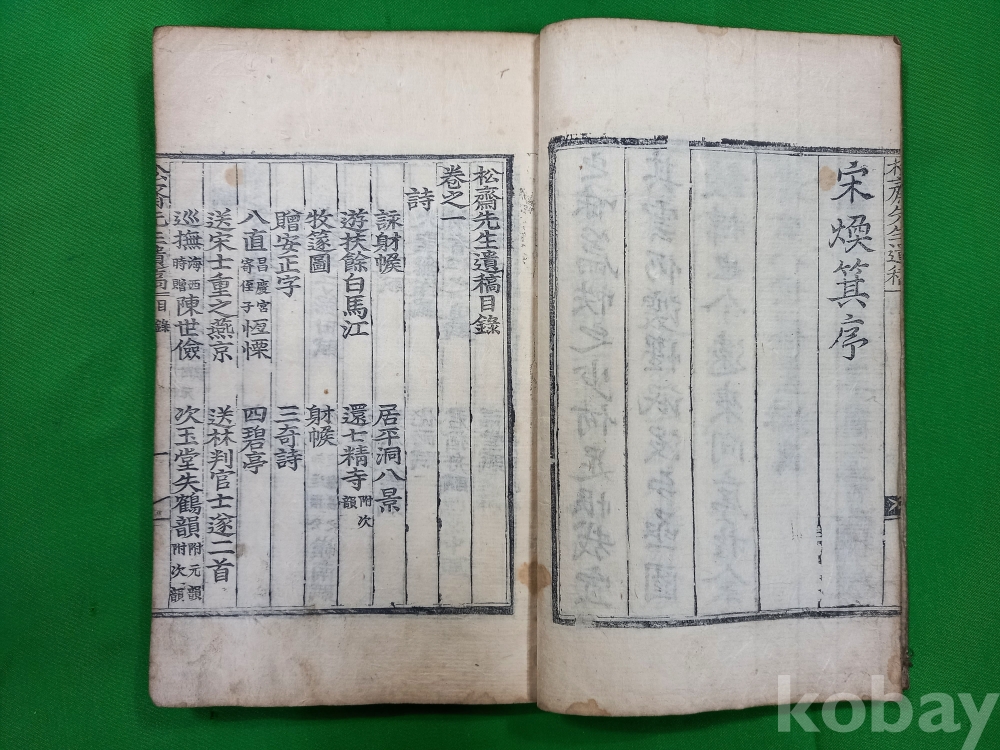 宋煥箕序
松齋先生遺稿
松齋先生遺稿目錄
卷之一
詩
詠射帿
居平洞八景
遊扶餘白馬江
還七精寺附次韻
牧篴圖
射帿
贈安正字
三奇詩
八直昌慶宮寄侄子恆慄
四碧亭
送宋士重之燕京
送林判官士遂二首
巡撫海西時贈陳世儉
次玉堂失鶴韻附元韻附次韻
松齋先生遺稿 目錄 一
kobay